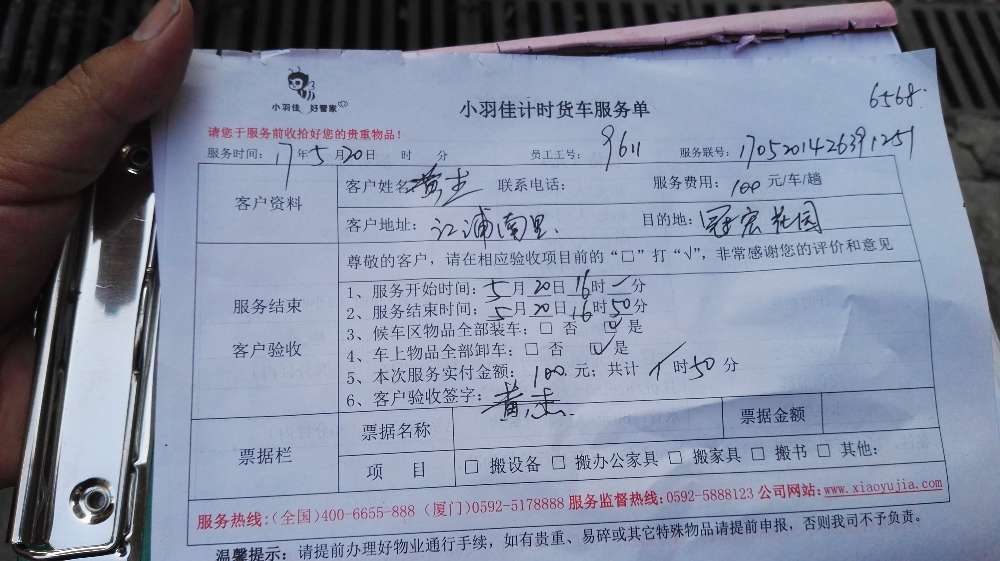 小羽佳 好管家
小羽佳计时货车服务单
6568
请您于服务前收拾好您的贵重物品！
服务时间：17年5月20日 时 分 员工工号：9611 服务联号：1705201426391251
客户资料
客户姓名 黄杰 联系电话： 服务费用：100元/车/趟
客户地址：江浦南里 目的地：冠宏花园
尊敬的客户，请在相应验收项目前的“□”打“√”，非常感谢您的评价和意见
服务结束
客户验收
1、服务开始时间：5月20日16时一分
2、服务结束时间：5月20日16时50分
3、候车区物品全部装车：□ 否 ☑ 是
4、车上物品全部卸车：□ 否 ☑ 是
5、本次服务实付金额：100元；共计 时50分
6、客户验收签字：黄杰
票据栏
票据名称 票据金额
项 目 □ 搬设备 □ 搬办公家具 □ 搬家具 □ 搬书 □ 其他：
服务热线：（全国）400-6655-888（厦门）0592-5178888 服务监督热线：0592-5888123 公司网站：www.xiaoyujia.com
温馨提示：请提前办理好物业通行手续，如有贵重、易碎或其它特殊物品请提前申报，否则我司不予负责。